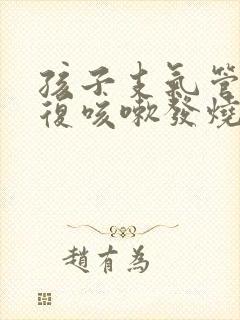 孩子支氣管
復咳嗽發燒
趙有為